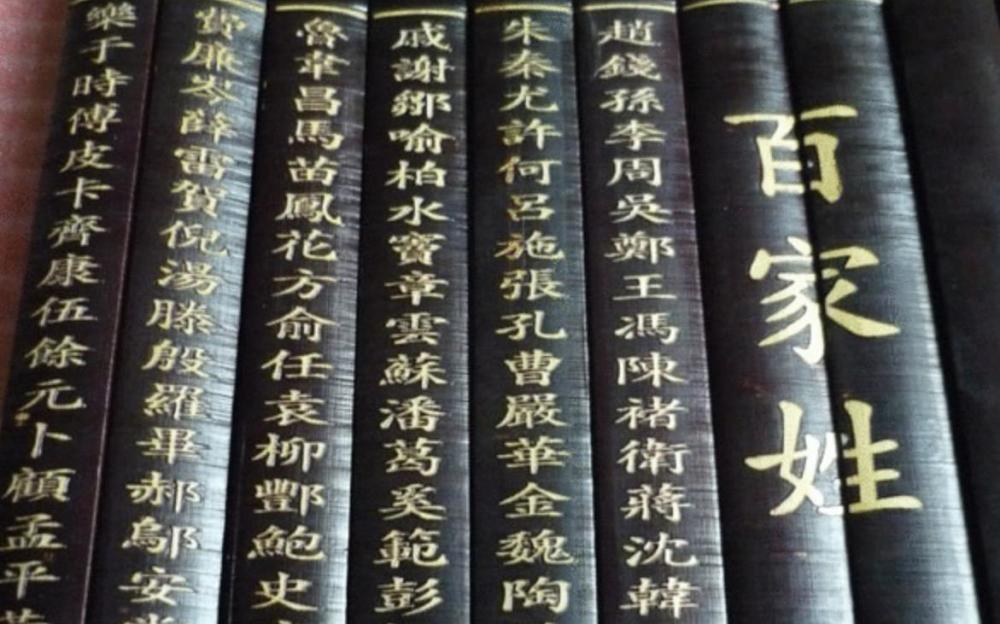 百家姓
趙錢孫李周吳鄭王馮陳褚衛蔣沈韓
朱秦尤許何呂施張孔曹嚴華金魏陶
戚謝鄒喻柏水竇章雲蘇潘葛奚範彭
魯韋昌馬苗鳳花方俞任袁柳酆鮑史
費廉岑薛雷賀倪湯滕殷羅畢郝鄔安
樂于時傅皮卡齊康伍餘元卜顧孟平